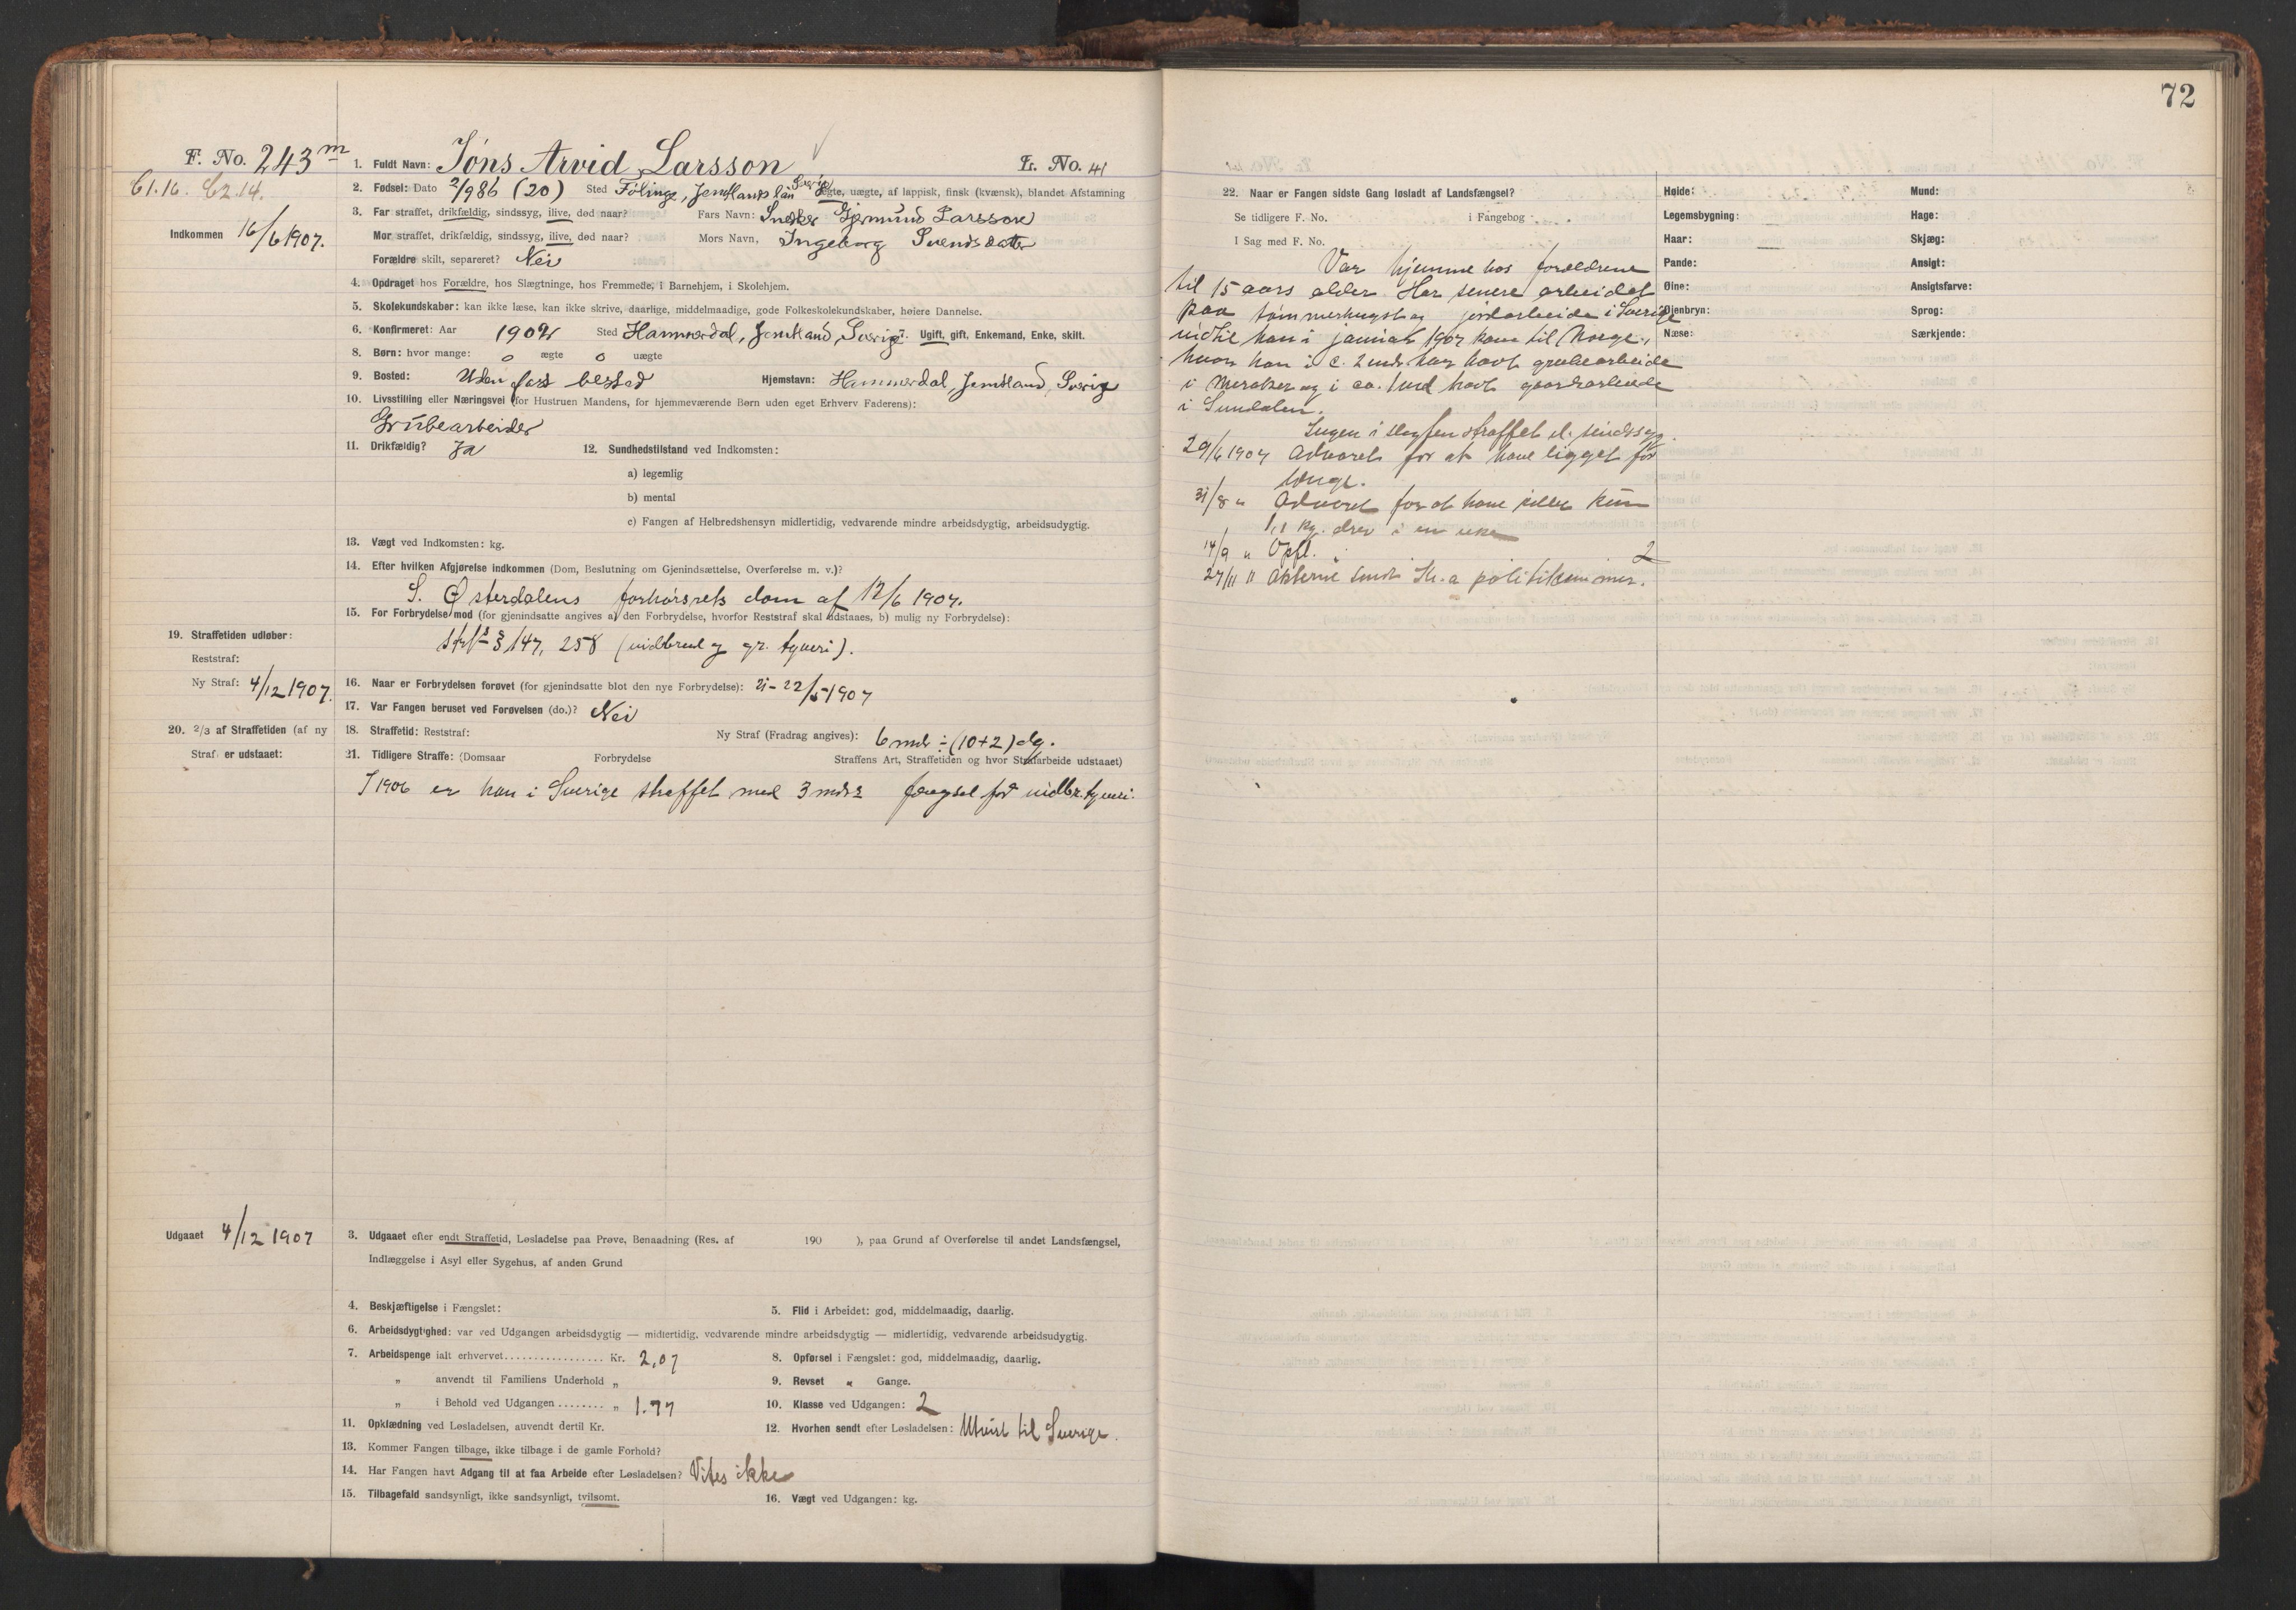 72
F. No. 243 m
61.16. 62.14.
Indkommen 16/6 1907.
1. Fuldt Navn: Jöns Arvid Larsson
Lr. No. 41
2. Fødsel: Dato 2/9 86 (20) Sted Fölinge, Jemtlands län Sverige ægte, uægte, af lappisk, finsk (kvænsk), blandet Afstamning
3. Far straffet, drikfældig, sindssyg, ilive, død naar? Fars Navn: Snedker Gjermund Larsson
Mor straffet, drikfældig, sindssyg, ilive, død naar? Mors Navn, Ingeborg Svendsdatter
Forældre skilt, separeret? Nei
4. Opdraget hos Forældre, hos Slægtninge, hos Fremmede, i Barnehjem, i Skolehjem.
5. Skolekundskaber: kan ikke læse, kan ikke skrive, daarlige, middelmaadige, gode Folkeskolekundskaber, høiere Dannelse.
6. Konfirmeret: Aar 1902 Sted Hammerdal, Jemtland, Sverige 7. Ugift, gift, Enkemand, Enke, skilt.
8. Børn: hvor mange: 0 ægte 0 uægte
9. Bosted: Uden fast bested Hjemstavn: Hammerdal, Jemtland, Sverige
10. Livsstilling eller Næringsvei (for Hustruen Mandens, for hjemmeværende Børn uden eget Erhverv Faderens):
Grubearbeider
11. Drikfældig? Ja 12. Sundhedstilstand ved Indkomsten:
a) legemlig
b) mental
c) Fangen af Helbredshensyn midlertidig, vedvarende mindre arbeidsdygtig, arbeidsudygtig.
13. Vægt ved Indkomsten: kg.
14. Efter hvilken Afgjørelse indkommen (Dom, Beslutning om Gjenindsættelse, Overførelse m. v.)?
S. Østerdalens forhørsrets dom af 12/6 1907.
15. For Forbrydelse mod (for gjenindsatte angives a) den Forbrydelse, hvorfor Reststraf skal udstaaes, b) mulig ny Forbrydelse):
strfl § 147, 258 (indbrud og gr. tyveri).
19. Straffetiden udløber:
Reststraf:
Ny Straf: 4/12 1907.
16. Naar er Forbrydelsen forøvet (for gjenindsatte blot den nye Forbrydelse): 21-22/5 1907
17. Var Fangen beruset ved Forøvelsen (do.)? Nei
20. 2/3 af Straffetiden (af ny
Straf) er udstaaet:
18. Straffetid: Reststraf: Ny Straf (Fradrag angives): 6 mdr ÷ (10+2) dg.
21. Tidligere Straffe: (Domsaar Forbrydelse Straffens Art, Straffetiden og hvor Strafarbeide udstaaet)
I 1906 er han i Sverige straffet med 3 mdrs fængsel for indbr. tyveri.
Udgaaet 4/12 1907
3. Udgaaet efter endt Straffetid, Løsladelse paa Prøve, Benaadning (Res. af 190 ), paa Grund af Overførelse til andet Landsfængsel,
Indlæggelse i Asyl eller Sygehus, af anden Grund
4. Beskjæftigelse i Fængslet: 5. Flid i Arbeidet: god, middelmaadig, daarlig.
6. Arbeidsdygtighed: var ved Udgangen arbeidsdygtig — midlertidig, vedvarende mindre arbeidsdygtig — midlertidig, vedvarende arbeidsudygtig.
7. Arbeidspenge ialt erhvervet................. Kr. 2,07 8. Opførsel i Fængslet: god, middelmaadig, daarlig.
„ anvendt til Familiens Underhold „ 9. Revset " Gange.
„ i Behold ved Udgangen ........ „ 1.77 10. Klasse ved Udgangen: 2
11. Opklædning ved Løsladelsen, anvendt dertil Kr. 12. Hvorhen sendt efter Løsladelsen: Utvist til Sverige.
13. Kommer Fangen tilbage, ikke tilbage i de gamle Forhold?
14. Har Fangen havt Adgang til at faa Arbeide efter Løsladelsen? Vites ikke
15. Tilbagefald sandsynligt, ikke sandsynligt, tvilsomt. 16. Vægt ved Udgangen: kg.
22. Naar er Fangen sidste Gang løsladt af Landsfængsel?
Se tidligere F. No. i Fangebog
I Sag med F. No.
Var hjemme hos forældrene
til 15 aars alder. Har senere arbeidet
paa tømmerhugst og jordarbeide i Sverige
indtil han i januar 1907 kom til Norge,
hvor han i c. 2 mdr. har havt grubearbeide
i Meraker og i ca. 1 md havt gaardsarbeide
i Sundalen.
Ingen i slegten straffet el. sindssyg.
29/6 1907 Advaret for at have ligget for
længe.
31/8 " Advaret for at have pillet kun
1,1 kg. drev i en uke
14/9 " Opfl. 2
27/11 " Akterne sendt Kr.a politikammer.
Høide:
Legemsbygning:
Haar:
Pande:
Øine:
Øjenbryn:
Næse:
Mund:
Hage:
Skjæg:
Ansigt:
Ansigtsfarve:
Sprog:
Særkjende: